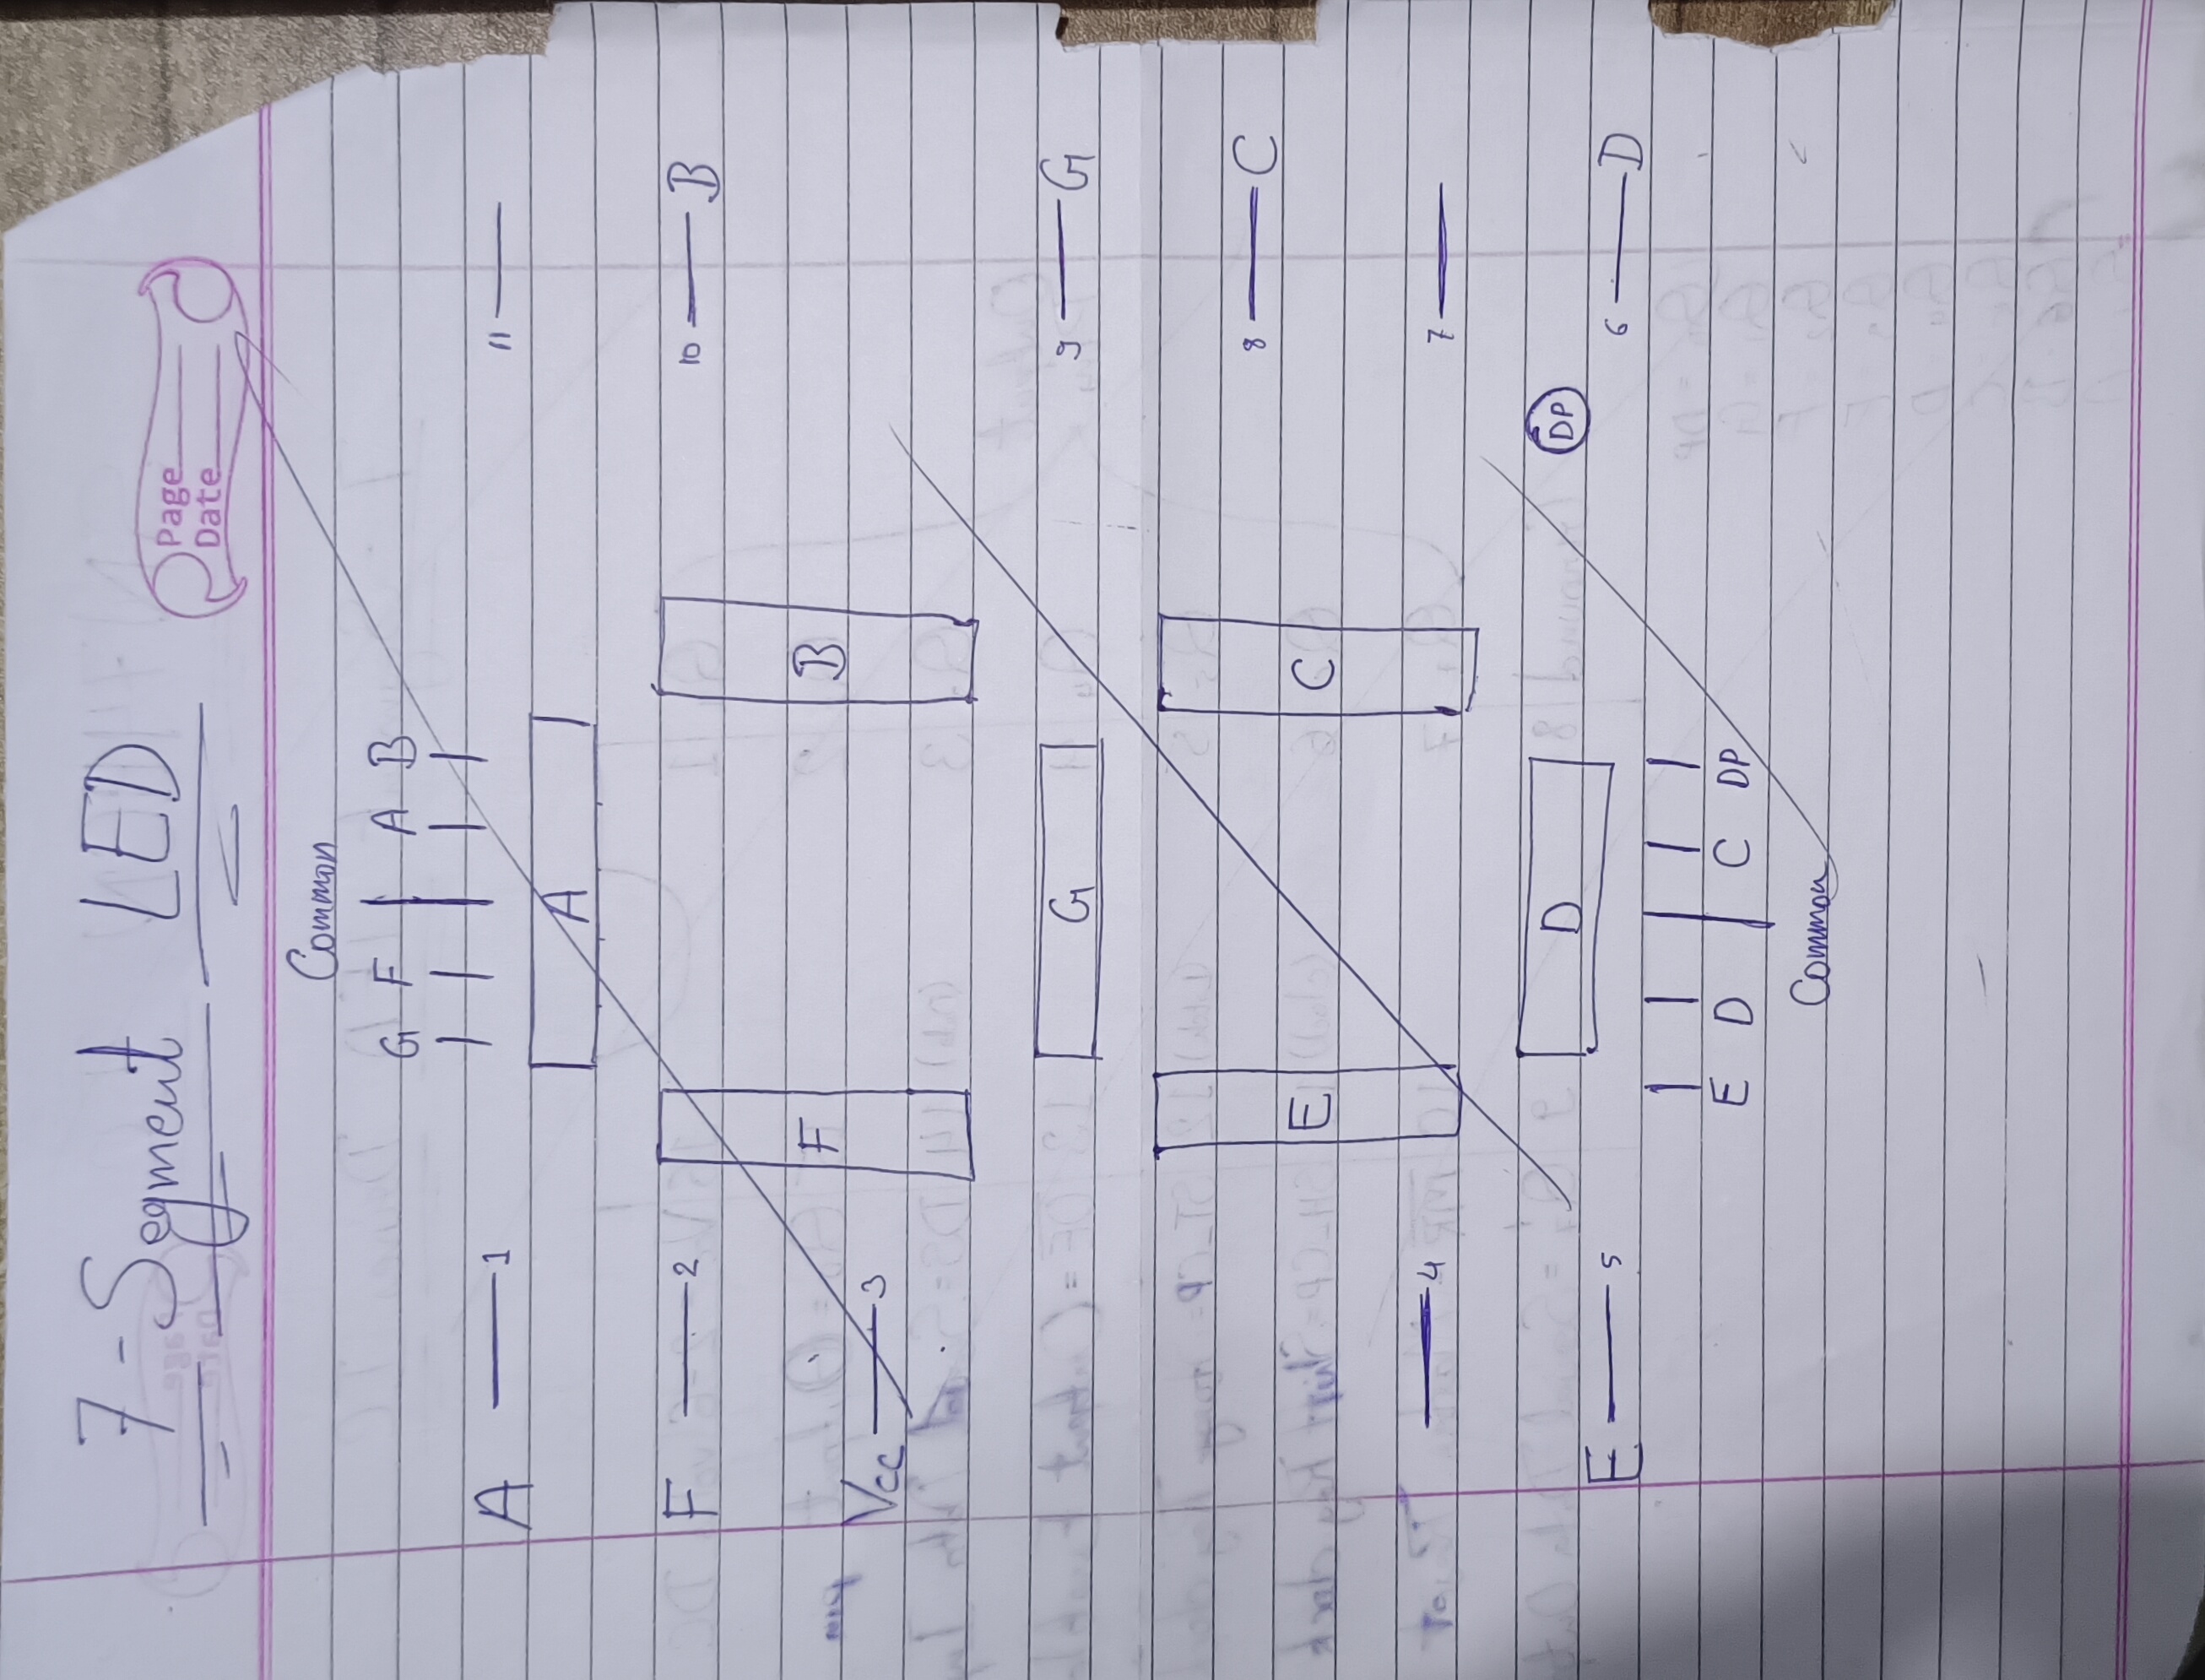 7-Segment LED
Page
Date
Common
G F A B
A 1 11
A
F 2 10 B
F B
Vcc 3
G 9 G
8 C
E C
4 7
D DP
E 5 6 D
E D C DP
Common